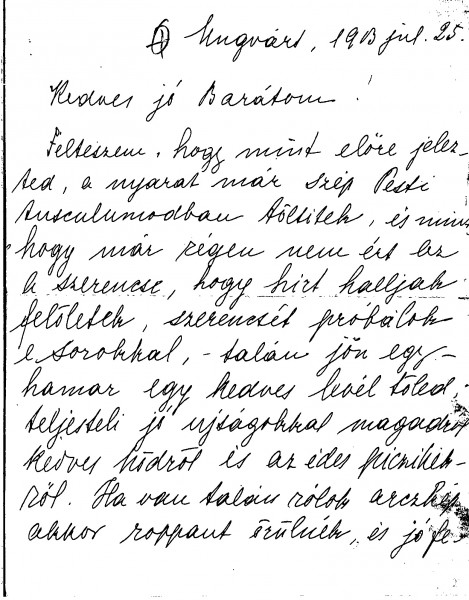 ① Ungvárt, 1913 jul. 25.
Kedves jó Barátom!
Felteszem, hogy mint előre jelez-
ted, a nyarat már szép Pesti
tusculumodban töltitek, és mint
hogy már régen nem ért az
a szerencse, hogy hírt halljak
felőletek, szerencsét próbálok
e sorokkal, - talán jön egy-
hamar egy kedves levél tőled,
teljesteli jó ujságokkal magadról
kedves nődről és az édes picnikék-
ről. Ha van talán rólok arczkép
akkor roppant örülnék, és jó fe